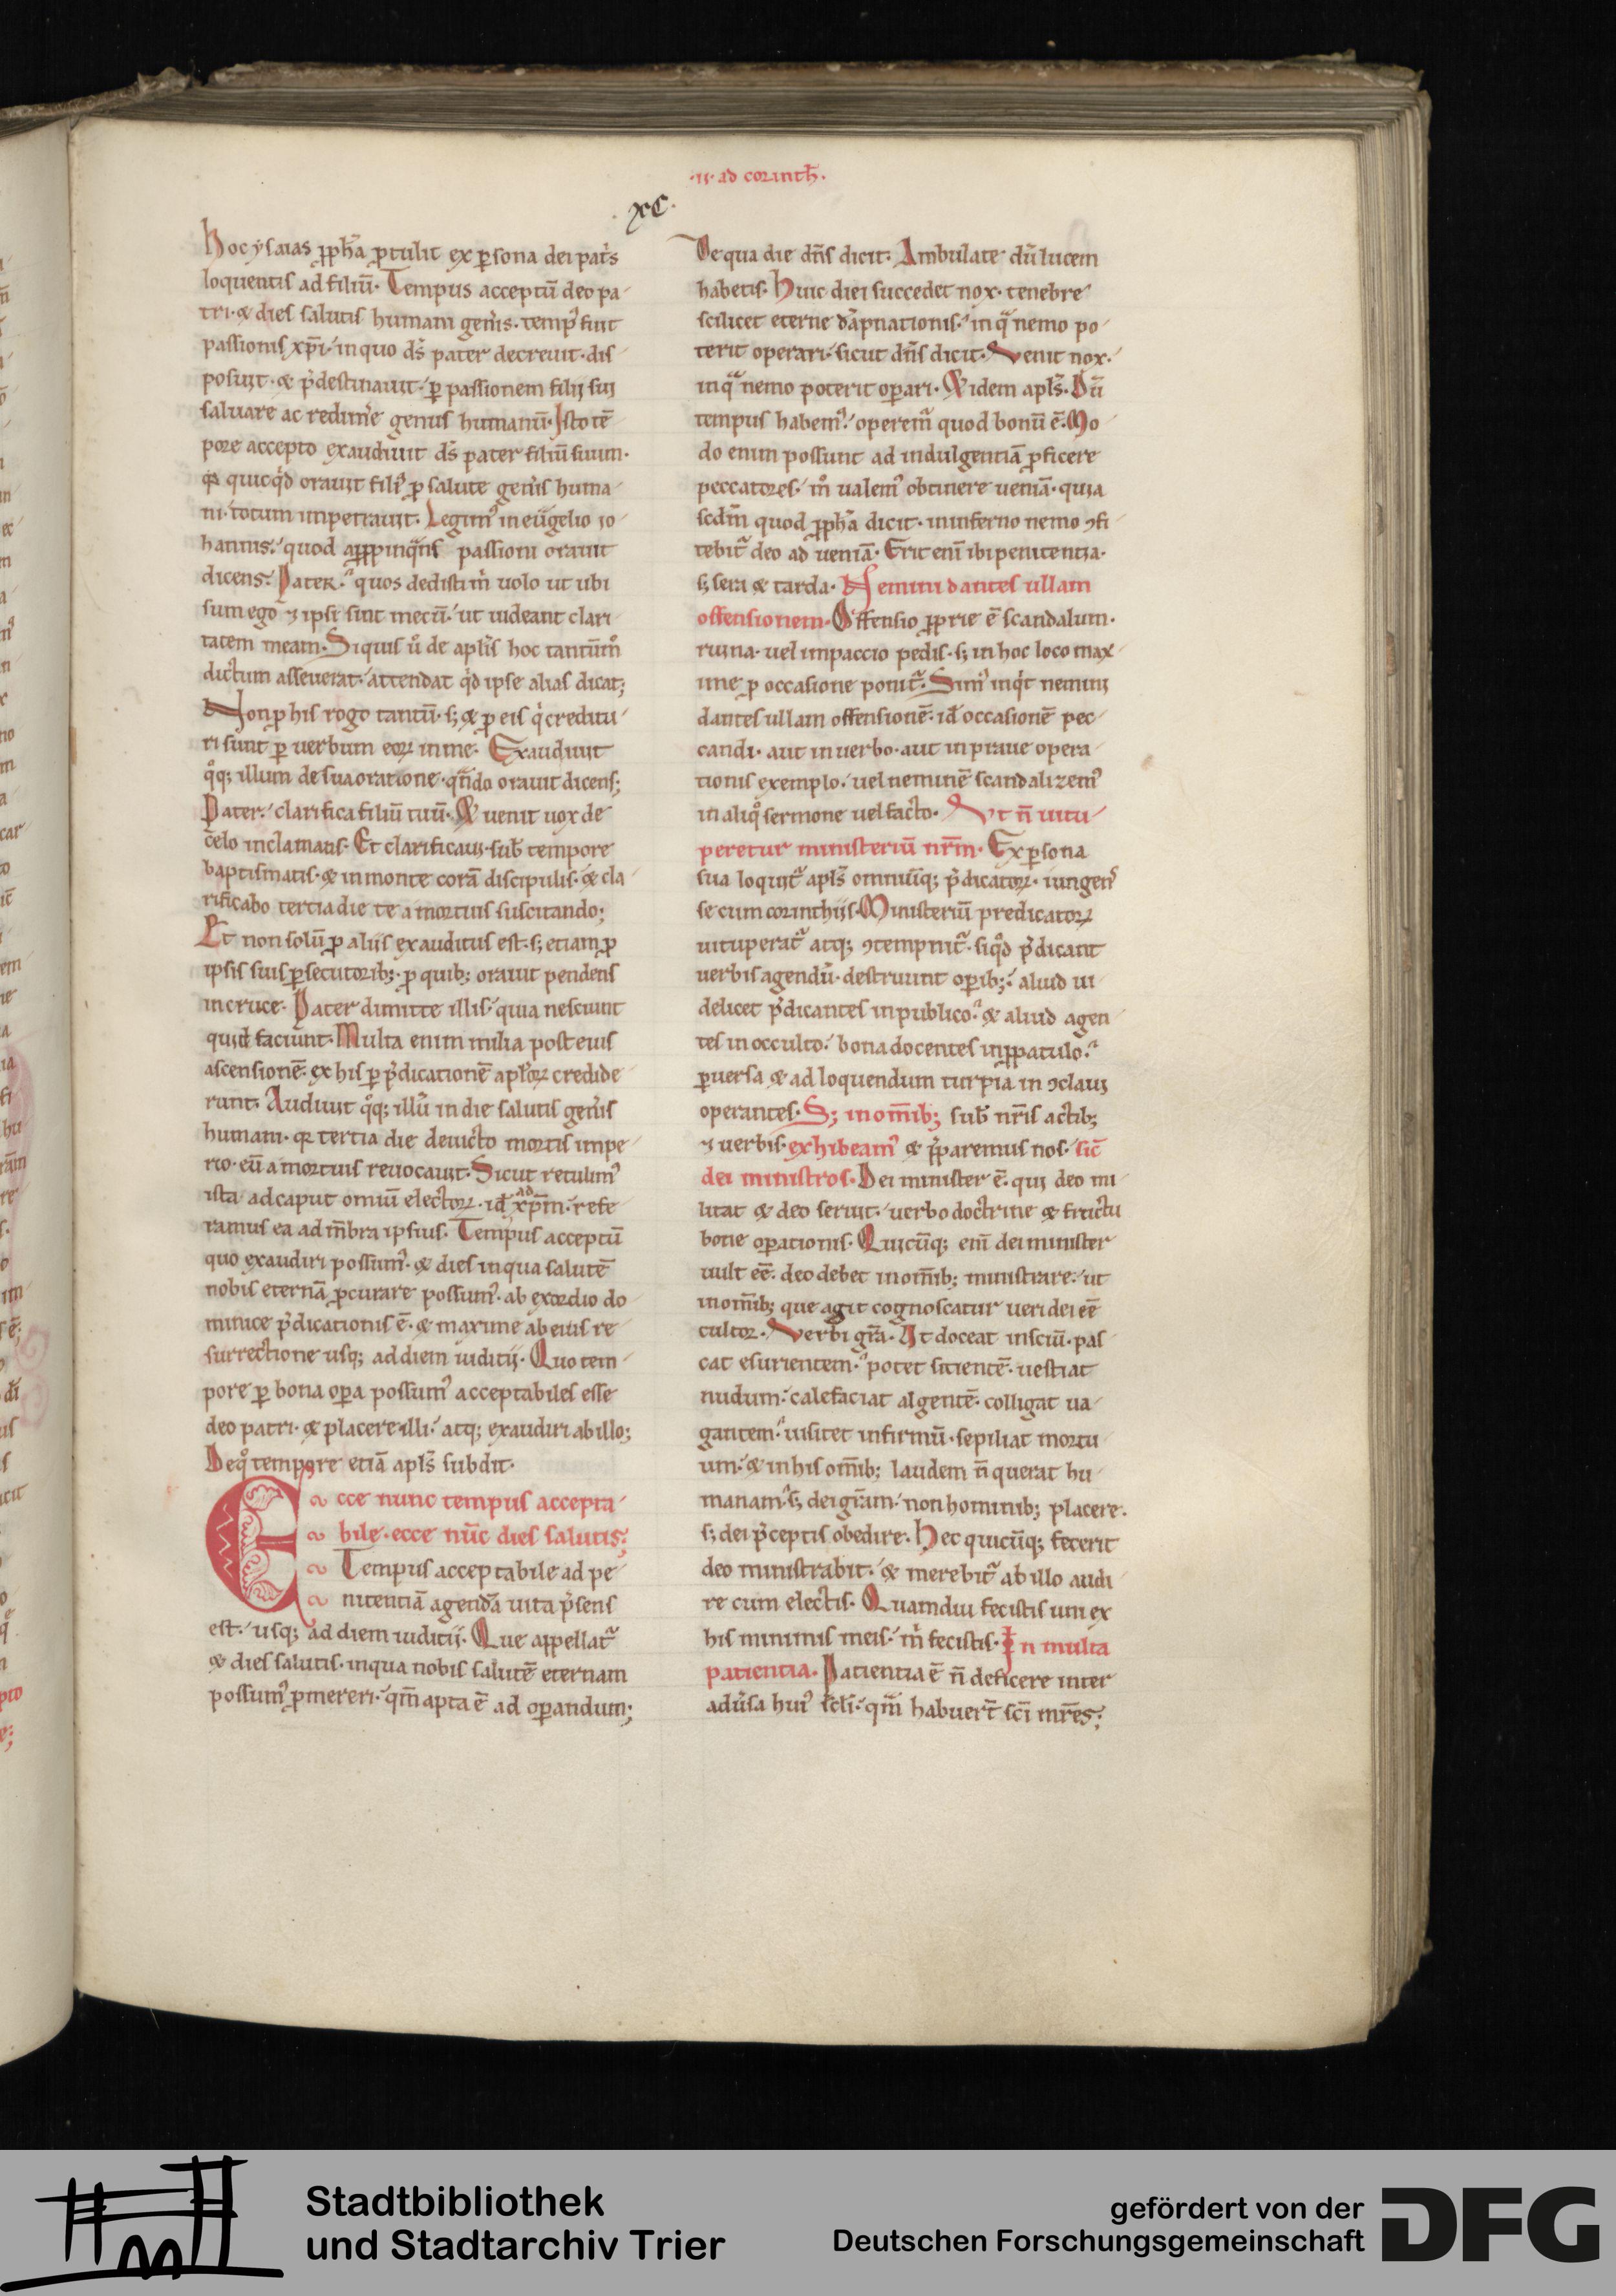 ·ii· ad corinth̄.
·xc·
hoc ẏsaias ꝓph̄a ꝓtulit ex ꝑsona dei pat͛s
loquentis ad filiū· Tempus acceptū deo pa
tri· & dies salutis humani gen͛is· temp᾿ fuit
passionis xp̄i· in quo ds̄ pater decreuit· dis
posuit· & p̄destinauit· ꝑ passionem filii sui
saluare ac redim͛e genus humanū· Isto tē
pore accepto exaudiuit ds̄ pater filiū suum·
quicqͥd orauit fili᾿ ꝓ salute gen͛is huma
ni· totum impetrauit· Legim᾿ in euˉgelio io
hannis· quod aꝓpinqͣns passioni orauit
dicens· Pater· quos dedisti m̍ uolo ut ubi
sum ego ⁊ ipsi sint mecū· ut uideant clari
tatem meam· Siquis u͛o de apl̄is hoc tantūmͦ
dictum asseuerat· attendat q̍d ipse alias dicat;
Non ꝓ his rogo tantū· s; & ꝓ eis q̍ creditu
ri sunt ꝑ uerbum eoꝝ in me· Exaudiuit
qͦq; illum de sua oratione· qn̄do orauit dicens;
Pater· clarifica filiū tuū· & uenit uox de
celo inclamans· Et clarificaui· sub̄ tempore
baptismatis· & in monte corā discipulis· & cla
rificabo tertia die te a mortuis suscitando;
Et non solū ꝓ aliis exauditus est· s; etiam ꝓ
ipsis suis ꝑsecutorib;· ꝓ quib; orauit pendens
in cruce· Pater dimitte illis· quia nesciunt
quid faciunt· Multa enim milia post eius
ascensionē· ex his ꝑ p̄dicationē apl̄oꝝ credide
runt· Audiuit qͦq; illū in die salutis gen͛is
humani· qꝛ tertia die deuicto mortis impe
rio· eū a mortuis reuocauit· Sicut retulim᾿
ista ad caput omiū electoꝝ· id̄ ad xp̄m· refe
ramus ea ad m̄bra ipsius· Tempus acceptū
quo exaudiri possum᾿· & dies in qua salutē
nobis eternā ꝓcurare possum᾿· ab exordio do
minice p̄dicationis ē· & maxime ab eius re
surrectione usq; ad diem iudicii· Quo tem
pore ꝑ bona oꝑa possum᾿ acceptabiles esse
deo patri· & placere illi· atq; exaudiri ab illo;
De qͦ tempore etiā apl̄s subdit·
Ecce nunc tempus accepta
bile· ecce nūc dies salutis;
Tempus acceptabile ad pe
nitentiā agendā uita p̄sens
est· usq; ad diem iudicii· Que appellat᷑
& dies salutis· in qua nobis salutē eternam
possum᾿ ꝓmereri· qm̄ apta ē ad oꝑandum;
De qua die dn̄s dicit· Ambulate dū lucem
habetis· Huic diei succedet nox· tenebre
scilicet eterne dāpnationis· in qͣ nemo po
terit operari· sicut dn̄s dicit· Venit nox·
in qͣ nemo poterit oꝑari· & idem apl̄s· Dū
tempus habem᾿· operem᷑ quod bonū ē· Mo
do enim possunt ad indulgentiā ꝓficere
peccatores· m̊ ualem᾿ obtinere ueniā· quia
scdm̄ quod ꝓph̄a dicit· in inferno nemo ꝯfi
tebit᷑ deo ad ueniā· Erit eni̅ ibi penitentia·
s; sera & tarda· Nemini dantes ullam
offensionem· Offensio ꝓprie ē scandalum·
ruina· uel impaccio pedis· s; in hoc loco max
ime ꝓ occasione ponit᷑· Sim᾿ inq̍t nemini
dantes ullam offensionē· id̄ occasionē pec
candi· aut in uerbo· aut in praue opera
tionis exemplo· uel neminē scandalizem᾿
in aliqͦ sermone uel facto· Ut n̄ uitu
peretur ministeriū nr̄m· Ex ꝑsona
sua loquit᷑ apl̄s omniūq; p̄dicatoꝝ· iungens
se cum corinthiis· Ministeriū predicatoꝝ
uituperat᷑ atq; ꝯtempnit᷑· si qͦd p̄dicant
uerbis agendū· destruunt oꝑib;· aliud ui
delicet p̄dicantes in publico· & aliud agen
tes in occulto· bona docentes in ꝓpatulo·
ꝑuersa & ad loquendum turpia in ꝯclaui
operantes· S; in om̄ib; sub̄ nr̄is actib;
⁊ uerbis· exhibeam᾿ & p̄paremus nos· sic̄
dei ministros· Dei minister ē· qui deo mi
litat & deo seruit· uerbo doctrine & fructu
bone oꝑationis· Quicūq; eni̅ dei minister
uult eē· deo debet in om̄ib; ministrare· ut
in om̄ib; que agit cognoscatur ueri dei eē
cultor· Verbi gr̄a· Ut doceat insciū· pas
cat esurientem· potet sitientē· uestiat
nudum· calefaciat algentē· colligat ua
gantem· uisitet infirmū· sepiliat mortu
um· & in his om̄ib; laudem n̄ querat hu
manam· s; dei gr̄am· non hominib; placere·
s; dei p̄ceptis obedire· Hec quicūq; fecerit
deo ministrabit· & merebit᷑ ab illo audi
re cum electis· Quamdiu fecistis uni ex
his minimis meis· m̍ fecistis· In multa
patientia· Patientia ē n̄ deficere inter
adu͛sa hui᾿ sc̄li· qm̄ habuer̄t sc̄i mr̄es;
Stadtbibliothek
und Stadtarchiv Trier
gefördert von der
Deutschen Forschungsgemeinschaft
DFG